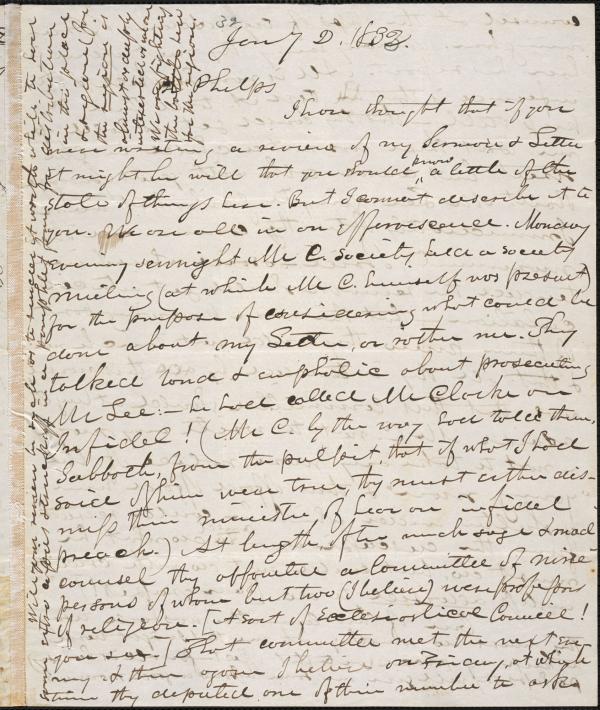 39
Jan 7 D. 1832.
Phelps
I have thought that if you
were writing a review of my Sermon & Letter
it might be well that you should know a little of the
state of things here. But I cannot describe it to
you. We are all in an effervescence. Monday
evening sennight Mr C. Society held a society
meeting (at which Mr C. himself was present)
for the purpose of considering what could be
done about my Letter, or rather me. They
talked loud & emphatic about prosecuting
Mr Lee:— he had called Mr Clarke an
Infidel! (Mr C. by the way had told them,
Sabbath, from the pulpit, that if what I had
said of him were true, they must either dis-
miss their minister or hear an infidel
preach.) At length, after much sage & mad
counsel they appointed a Committee of nine
persons of whom but two (I believe) were professors
of religion. [A sort of Ecclesiastical Council!
you see.] That committee met the next
& then again I believe on Friday, at which
time they deputed one of their number to ask
in this place
the region is
almost as deeply
interested as ours
We are fighting
the battle
for the region.